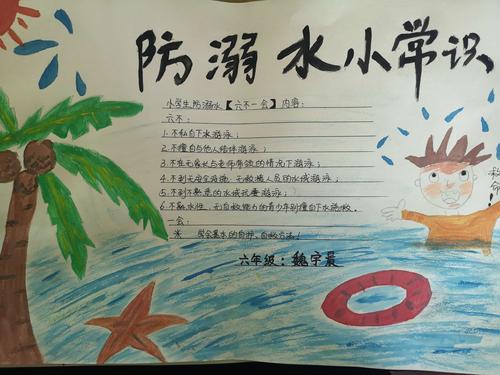 防溺水小常识
小学生防溺水【六不一会】内容：
六不：
1.不私自下水游泳；
2.不擅自与他人结伴游泳；
3.不在无家长与老师带领的情况下游泳；
4.不到无安全设施、无救援人员的水域游泳；
5.不到不熟悉的水域玩耍游泳；
6.不熟水性、无自救能力的青少年别擅自下水施救。
一会：
学会基本的自护、自救方法！
六年级：魏宇晨
救命